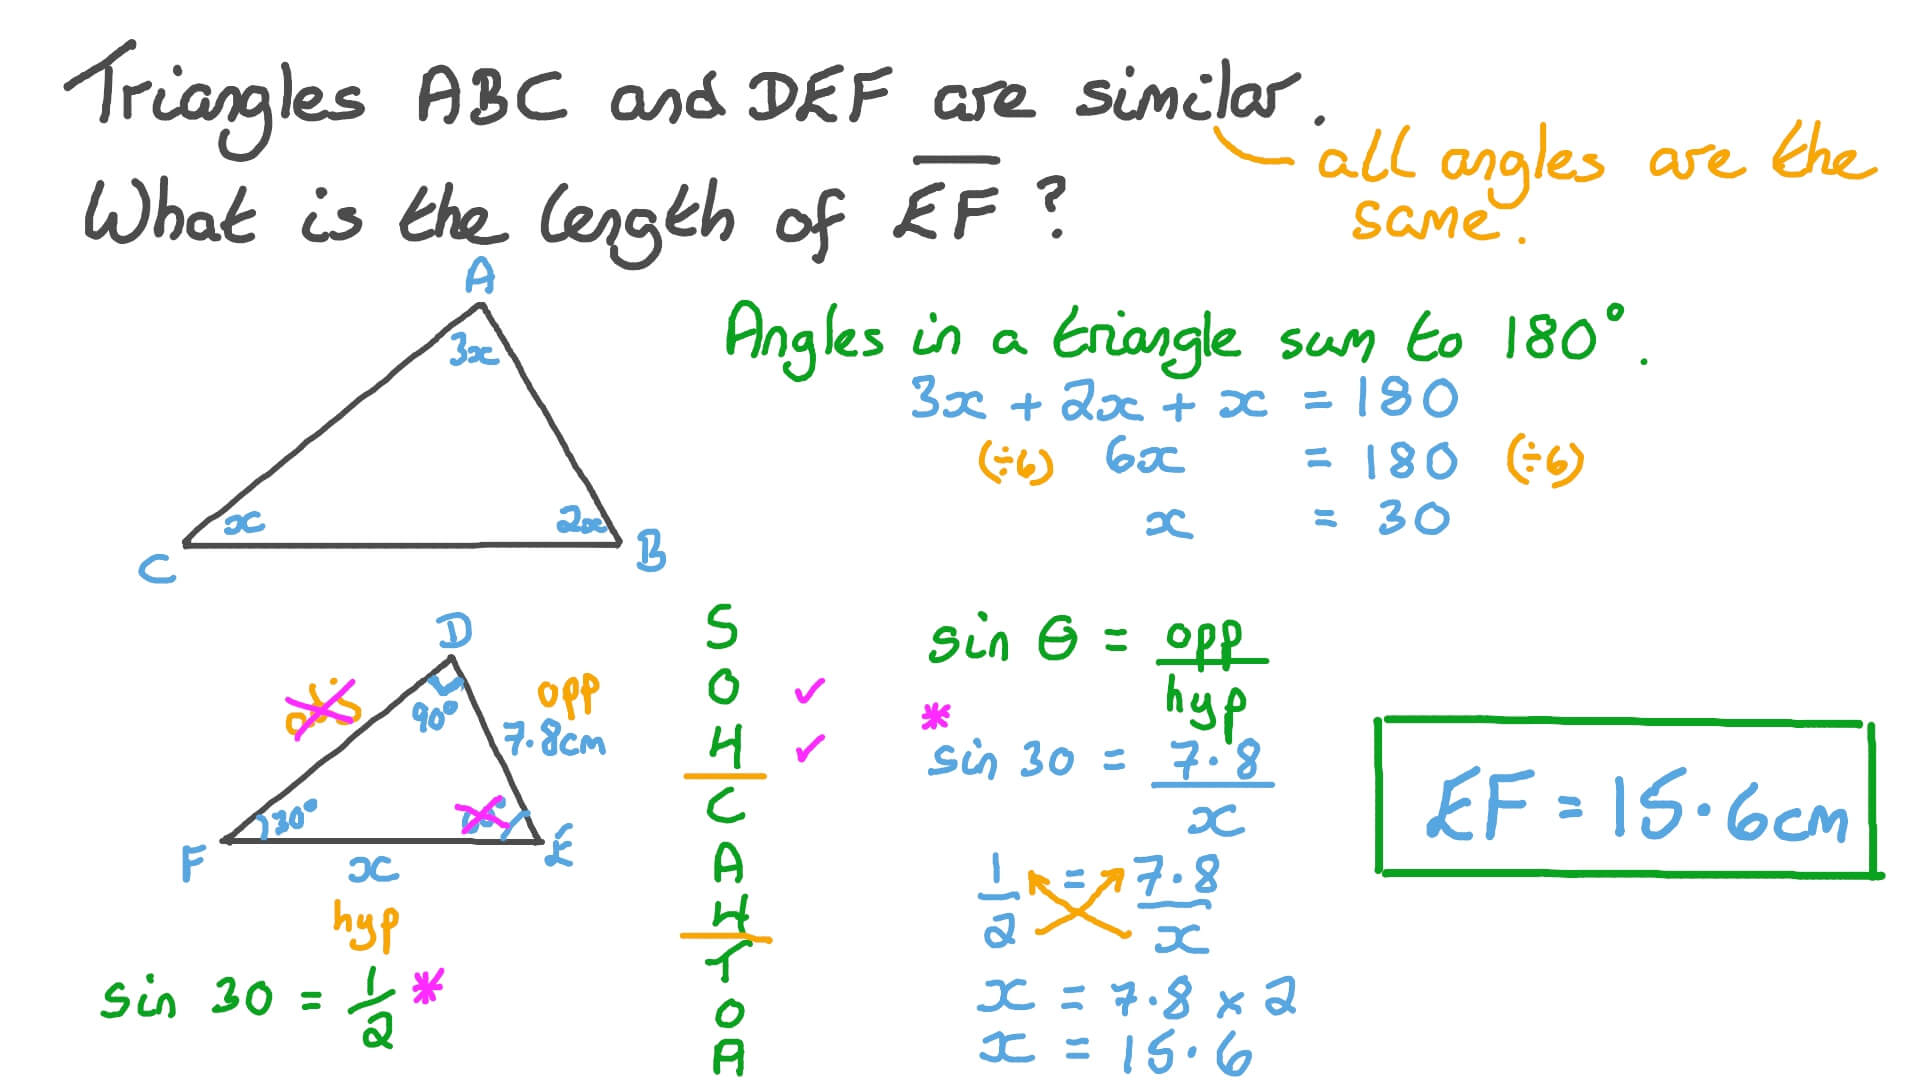 Triangles ABC and DEF are similar.
all angles are the
same.
What is the length of EF?
A
3x
x
2x
C
B
Angles in a triangle sum to 180°.
3x + 2x + x = 180
(÷6) 6x = 180 (÷6)
x = 30
D
90°
opp
7.8cm
30°
F
E
x
hyp
sin 30 = 1/2 *
S
O ✓
H ✓
C
A
H
T
O
A
sin θ = opp/hyp
*
sin 30 = 7.8/x
1/2 = 7.8/x
x = 7.8 × 2
x = 15.6
EF = 15.6cm